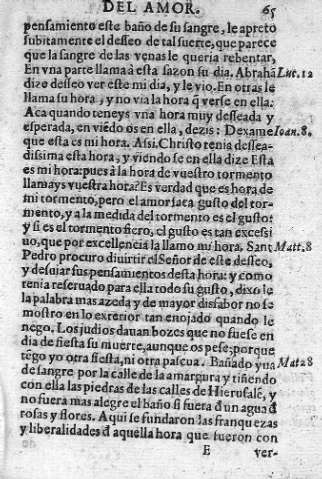 DEL AMOR. 65
pensamiento este baño de su sangre, le apreto
subitamente el desseo de tal suerte, que parece
que la sangre de las venas le queria rebentar,
En vna parte llama à esta sazon su dia. Abrahã Luc. 12
dize desseo ver este mi dia, y le vio. En otras le
llama su hora, y no vìa la hora q̃ verse en ella.
Aca quando teneys vna hora muy desseada y
esperada, en viẽdo os en ella, dezis: Dexame Ioan. 8.
que esta es mi hora. Assi Christo tenia dessea-
dissima esta hora, y viendo se en ella dize Esta
es mi hora: pues à la hora de vuestro tormento
llamays vuestra hora? Es verdad que es hora de
mi tormento, pero el amor saca gusto del tor-
mento, y a la medida del tormento es el gusto:
y si es el tormento fiero, el gusto es tan excessi
uo, que por excellencia la llamo mi hora. Sant Matt. 8
Pedro procuro diuirtir el Señor de este desseo,
y desuiar sus pensamientos desta hora: y como
tenia reseruado para ella todo su gusto, dixo le
la palabra mas azeda y de mayor disfabor no se
mostro en lo exterior tan enojado quando le
nego. Los judios dauan bozes que no fuese en
dia de fiesta su muerte, aunque os pese; porque
tẽgo yo otra fiesta, ni otra pascua. Bañado yua Mat 28
de sangre por la calle de la amargura y tiñendo
con ella las piedras de las calles de Hierusalẽ, y
no fuera mas alegre el baño si fuera d̃ un agua d̃
rosas y flores. Aqui se fundaron las franquezas
y liberalidades d̃ aquella hora que fueron con
E ver-